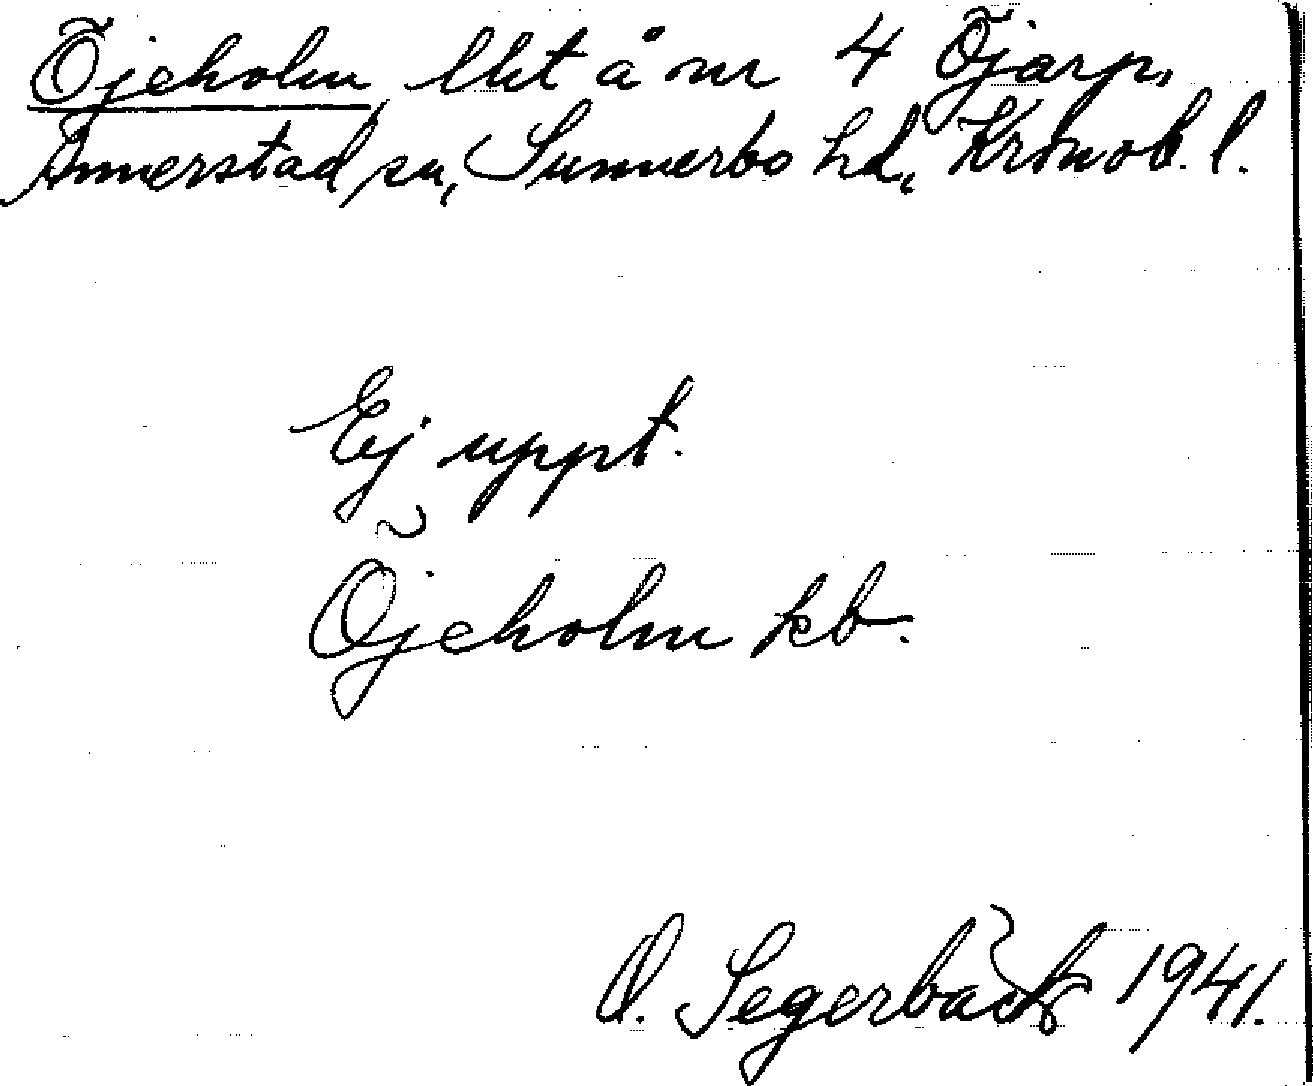 Öjeholm, lht å nr 4 Öjarp,
Annerstad sn, Sunnerbo hd, Kronob. l.
Ej uppt.
Öjeholm kb.
O. Segerbäck 1941.